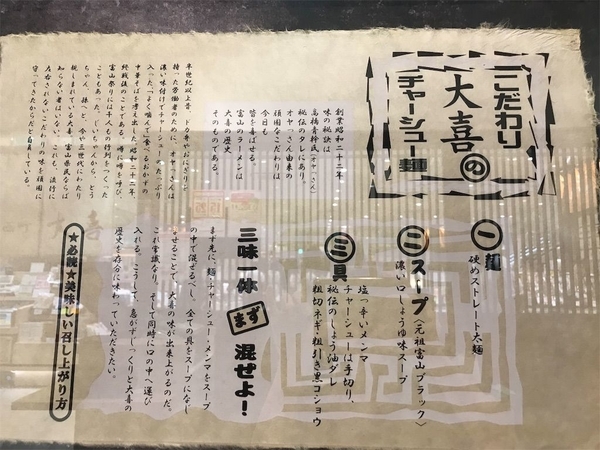 こだわり
大喜の
チャーシュー麺
創業昭和二十二年
味の秘訣は
高橋青幹氏(オヤっさん)
秘伝のタレにあり。
オヤっさん由来の
頑固なこだわりは
今日も
皆を喜ばせる。
富山のラーメンは
大喜の歴史
そのものである。
半世紀以上昔、ドカ弁やおにぎりを
持った労働者のために、オヤっさんは
濃い味付けでチャーシューのたっぷり
入った「よく噛んで食べるおかずの
中華そば」を増え出した昭和二十二年、
終戦後のことである。噂に噂を呼び、
富山祭りには千人もの行列をつくった
こともあった。じいちゃんから、とう
ちゃん、孫へと、今や三世代にわたり
親しまれている大喜。富山県民ならば
知らない者はいない。それも、流行に
左右されないこだわりの味を頑固に
守ってきたからだと自負している。
一 麺
硬めストレート太麺
二 スープ〈元祖富山ブラック〉
濃い口しょうゆ味スープ
三 具
塩っ辛いメンマ
チャーシューは手切り、
秘伝のしょう油ダレ
粗切ネギ・粗引き黒コショウ
三味一体 まず 混ぜよ!
まず先に、麺・チャーシュー・メンマをスープ
の中で混ぜるべし。全ての具をスープになじ
ませることで、大喜の味が出来上がるのだ。
これ常識なり。そして同時に口の中へ運び
入れる。こうして、息がずしっくりと大喜の
歴史を存分に味わっていただきたい。
★必読★美味しい召し上がり方